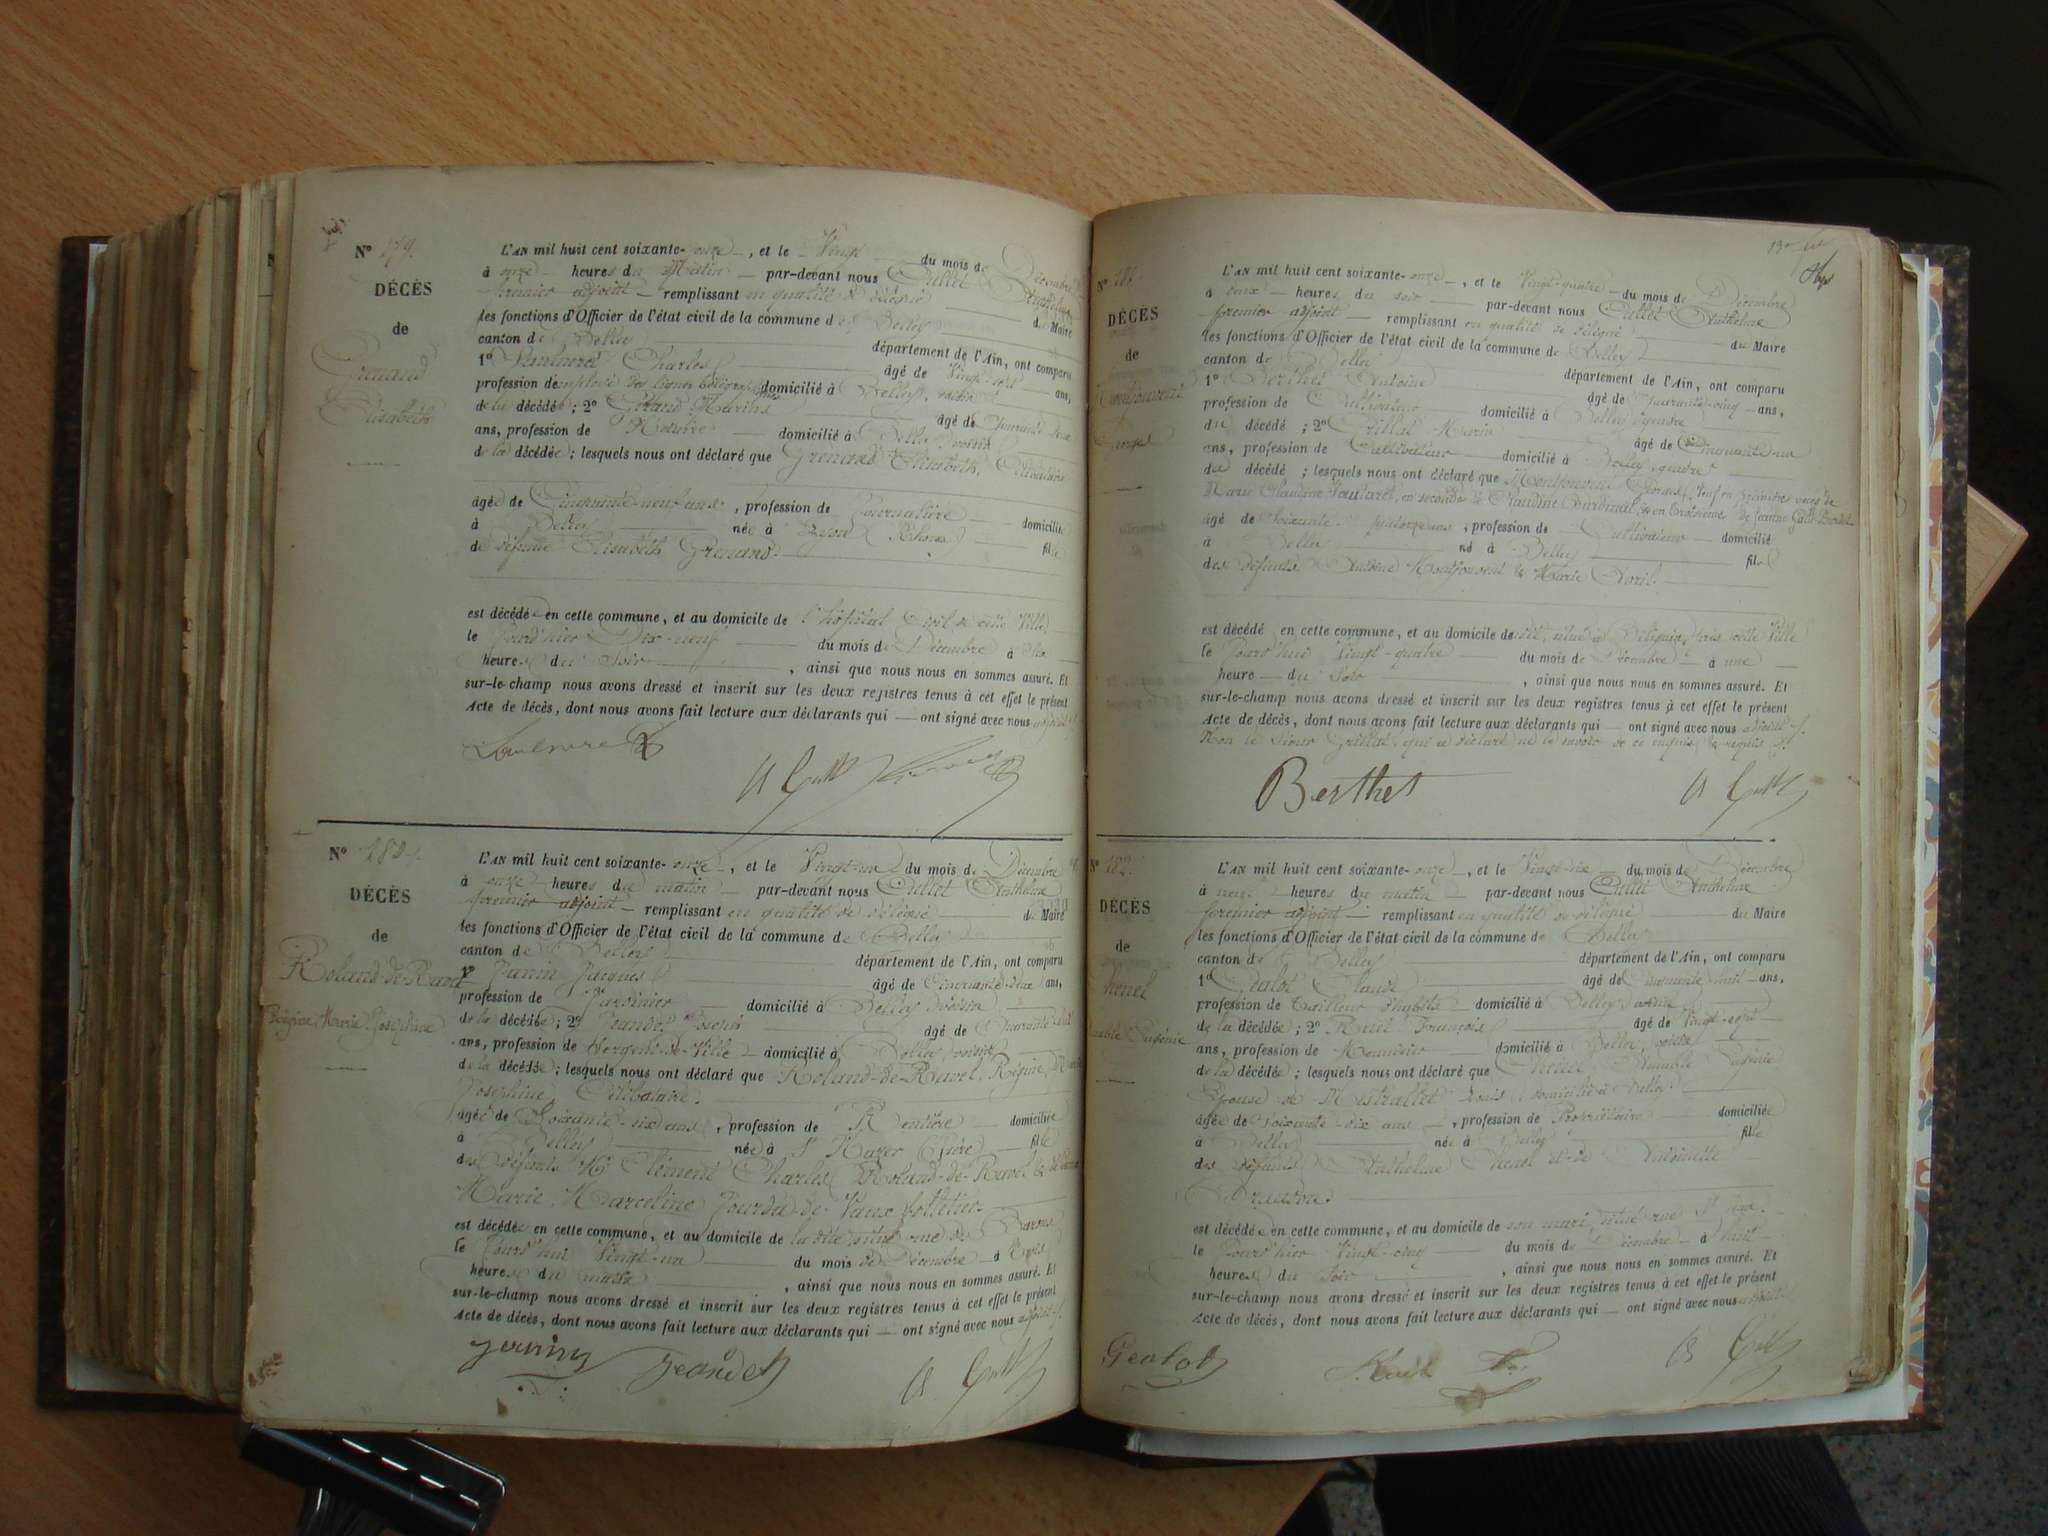 N° 179.
DÉCÈS
de
Grenand
Elisabeth
L'AN mil huit cent soixante-onze, et le Vingt du mois de Décembre
à onze heures du Matin par-devant nous Cullet Anthelme
premier adjoint remplissant en qualité de délégué du Maire
les fonctions d'Officier de l'état civil de la commune de Belley
canton de Belley département de l'Ain, ont comparu
1° Charles âgé de Vingt-sept ans,
profession d'employé des lignes télégraphiques domicilié à Belley, voisin
de la décédée; 2° âgé de Quarante-deux
ans, profession de domicilié à Belley voisin
de la décédée; lesquels nous ont déclaré que Grenand Elisabeth, Célibataire
âgée de Cinquante-neuf ans, profession de Journalière domiciliée
à Belley née à Lyon (Rhône) fille
de défunte Elisabeth Grenand.
est décédée en cette commune, et au domicile de l'hôpital Civil de cette Ville
le Jour d'hier Dix-neuf du mois de Décembre à six
heures du Soir, ainsi que nous nous en sommes assuré. Et
sur-le-champ nous avons dressé et inscrit sur les deux registres tenus à cet effet le présent
Acte de décès, dont nous avons fait lecture aux déclarants qui ont signé avec nous adjoint
A Cullet
N° 180.
DÉCÈS
de
Roland-de-Ravel
Régine, Marie Joséphine
L'AN mil huit cent soixante-onze, et le Vingt-un du mois de Décembre
à onze heures du matin par-devant nous Cullet Anthelme
premier adjoint remplissant en qualité de délégué du Maire
les fonctions d'Officier de l'état civil de la commune de Belley
canton de Belley département de l'Ain, ont comparu
1° Janin Jacques âgé de Cinquante-deux ans,
profession de Jardinier domicilié à Belley voisin
de la décédée; 2° Jeandet Joseph âgé de Quarante-
ans, profession de Sergent-de-Ville domicilié à Belley, voisin
de la décédée; lesquels nous ont déclaré que Roland-de-Ravel, Régine, Marie
Joséphine, Célibataire.
âgée de Soixante-six ans, profession de Rentière domiciliée
à Belley née à St Nazer (Isère) fille
des défunts Mr Clément Charles Roland-de-Ravel & de Dame
Marie Marceline Jourda-de-Vaux folletier.
est décédée en cette commune, et au domicile de la dite situé rue des Barons
le Jourd'hui Vingt-un du mois de Décembre à trois
heures du matin, ainsi que nous nous en sommes assuré. Et
sur-le-champ nous avons dressé et inscrit sur les deux registres tenus à cet effet le présent
Acte de décès, dont nous avons fait lecture aux déclarants qui ont signé avec nous adjoint
Janin Jeandet A Cullet
N° 181.
DÉCÈS
de
Montjouvent
L'AN mil huit cent soixante-onze, et le Vingt-quatre du mois de Décembre
à deux heures du soir par-devant nous Cullet Anthelme
premier adjoint remplissant en qualité de délégué du Maire
les fonctions d'Officier de l'état civil de la commune de Belley
canton de Belley département de l'Ain, ont comparu
1° Berthet Antoine âgé de Quarante-cinq ans,
profession de Cultivateur domicilié à Belley, gendre
du décédé; 2° Grillat Marie âgé de Cinquante-un
ans, profession de Cultivateur domicilié à Belley, gendre
du décédé; lesquels nous ont déclaré que Montjouvent, Veuf en première noces de
Marie Claudine, en seconde de Claudine Burdinat & en troisième de Jeanne
âgé de soixante-quatorze ans, profession de Cultivateur domicilié
à Belley né à Belley fils
des défunts Antoine Montjouvent & Marie
est décédé en cette commune, et au domicile dudit, situé à, près cette Ville
le Jourd'hui Vingt-quatre du mois de Décembre à une
heure du Soir, ainsi que nous nous en sommes assuré. Et
sur-le-champ nous avons dressé et inscrit sur les deux registres tenus à cet effet le présent
Acte de décès, dont nous avons fait lecture aux déclarants qui ont signé avec nous adjoint
Non le sieur Grillat, qui a déclaré ne le savoir de ce enquis & requis
Berthet A Cullet
N° 182.
DÉCÈS
de
Chenel
Aimable Eugénie
L'AN mil huit cent soixante-onze, et le Vingt-six du mois de Décembre
à neuf heures du matin par-devant nous Cullet Anthelme
premier adjoint remplissant en qualité de délégué du Maire
les fonctions d'Officier de l'état civil de la commune de Belley
canton de Belley département de l'Ain, ont comparu
1° Gealot Claude âgé de Cinquante-huit ans,
profession de tailleur d'habits domicilié à Belley, voisin
de la décédée; 2° François âgé de Vingt-sept
ans, profession de Menuisier domicilié à Belley, voisin
de la décédée; lesquels nous ont déclaré que Chenel Aimable Eugénie
Epouse de Mestrallet Louis, domicilié à Belley
âgée de soixante-dix ans, profession de Propriétaire domiciliée
à Belley née à Belley fille
des défunts Anthelme Chenel et de Antoinette
est décédée en cette commune, et au domicile de son mari, situé rue St Jean.
le Jour d'hier Vingt-cinq du mois de Décembre à huit
heures du Soir, ainsi que nous nous en sommes assuré. Et
sur-le-champ nous avons dressé et inscrit sur les deux registres tenus à cet effet le présent
Acte de décès, dont nous avons fait lecture aux déclarants qui ont signé avec nous adjoint
Gealot A Cullet